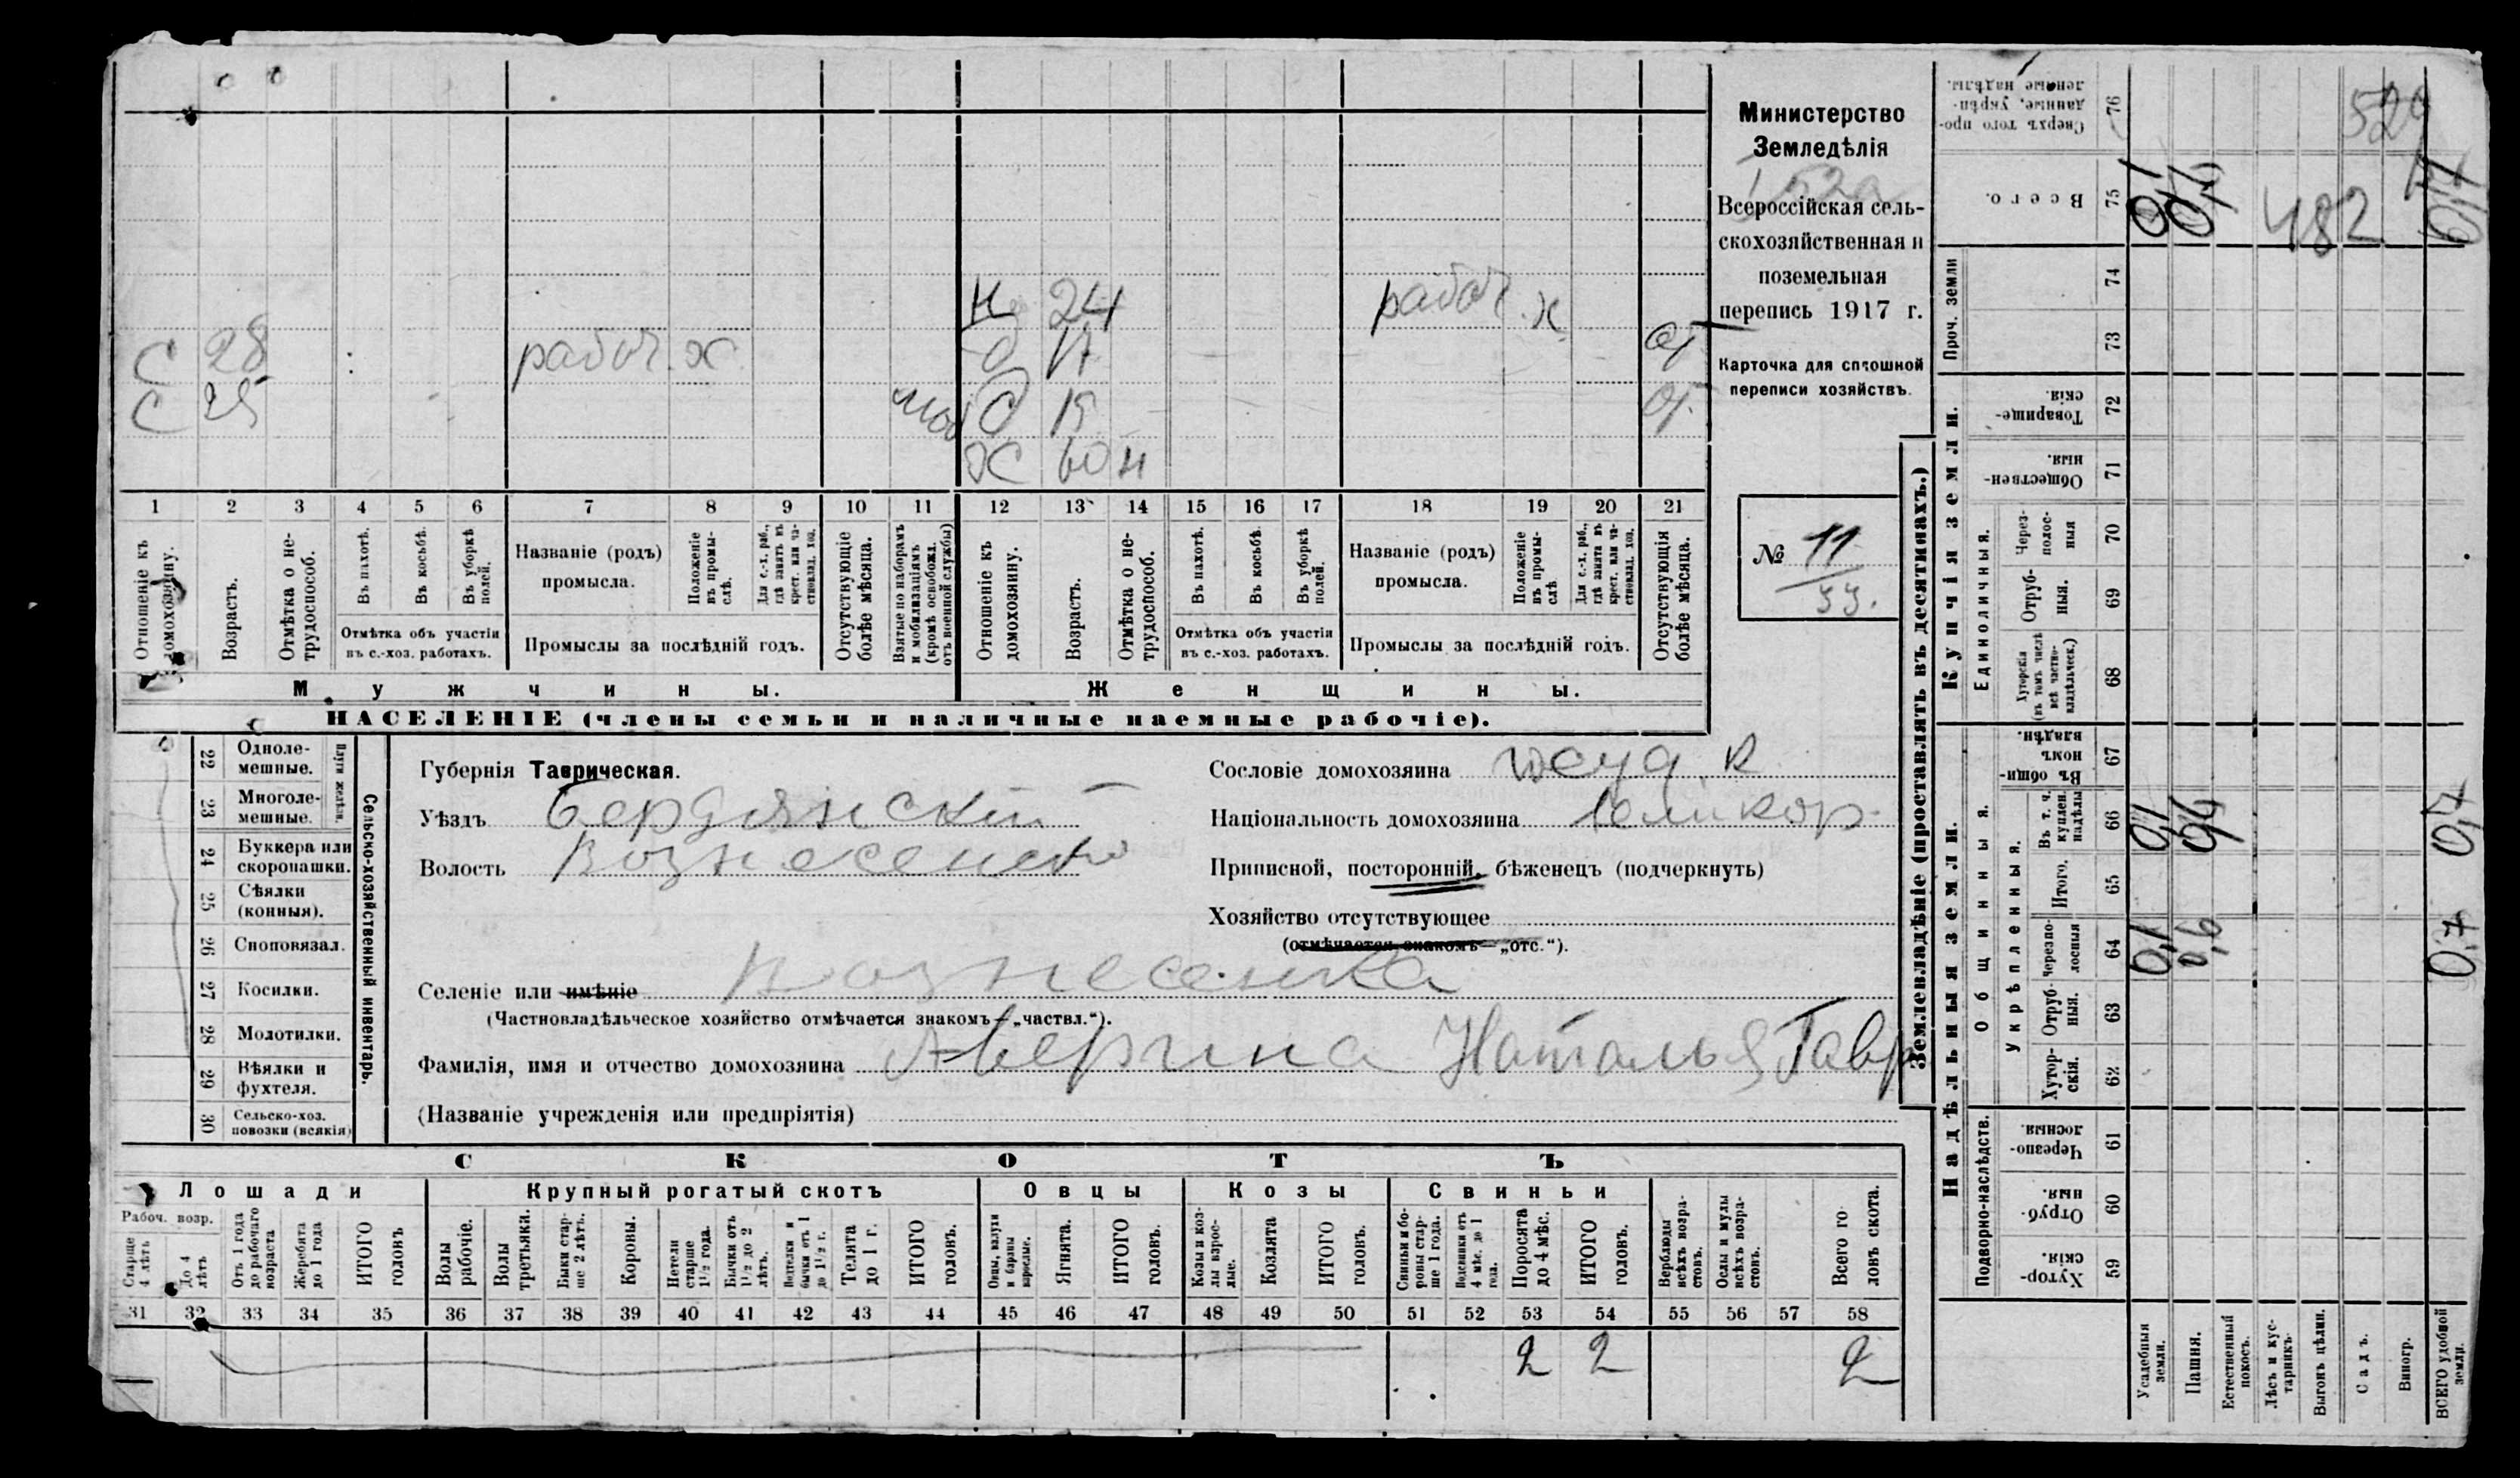 Министерство
Земледѣлія
Всероссійская сель-
скохозяйственная и
поземельная
перепись 1917 г.
Карточка для сплошной
переписи хозяйствъ.
№ 11
33.
н 24 рабоч. х
С 28 рабоч. х д 17 от
С 25 моб д 19 от
х 60 н
1 2 3 4 5 6 7 8 9 10 11 12 13 14 15 16 17 18 19 20 21
Отношеніе къ домохозяину.
Возрастъ.
Отмѣтка о не-трудоспособ.
Въ пахотѣ.
Въ косьбѣ.
Въ уборкѣ полей.
Отмѣтка объ участіи
въ с.-хоз. работахъ.
Названіе (родъ)
промысла.
Положеніе въ промы-слѣ.
Для с.-х. раб., гдѣ занятъ въ крест. или ча-стновлад. хоз.
Промыслы за послѣдній годъ.
Отсутствующіе болѣе мѣсяца.
Взятые по наборамъ и мобилизаціямъ (кромѣ освобожд. отъ военной службы)
Отношеніе къ домохозяину.
Возрастъ.
Отмѣтка о не-трудоспособ.
Въ пахотѣ.
Въ косьбѣ.
Въ уборкѣ полей.
Отмѣтка объ участіи
въ с.-хоз. работахъ.
Названіе (родъ)
промысла.
Положеніе въ промы-слѣ
Для с.-х. раб., гдѣ занята въ крест. или ча-стновлад. хоз.
Промыслы за послѣдній годъ.
Отсутствующія болѣе мѣсяца.
Мужчины. Женщины.
НАСЕЛЕНІЕ (члены семьи и наличные наемные рабочіе).
Сельско-хозяйственный инвентарь.
Плуги желѣзн.
22 Одноле-мешные.
23 Многоле-мешные.
24 Буккера или скоропашки.
25 Сѣялки (конныя).
26 Сноповязал.
27 Косилки.
28 Молотилки.
29 Вѣялки и фухтеля.
30 Сельско-хоз. повозки (всякія)
Губернія Таврическая.
Уѣздъ Бердянскій
Волость Вознесенск
Сословіе домохозяина госуд. к
Національность домохозяина великор.
Приписной, посторонній, бѣженецъ (подчеркнуть)
Хозяйство отсутствующее
(отмѣчается знакомъ—„отс.“).
Селеніе или имѣніе Вознесенка
(Частновладѣльческое хозяйство отмѣчается знакомъ—„частвл.“).
Фамилія, имя и отчество домохозяина Аверина Наталья Гавр
(Названіе учрежденія или предпріятія)
СКОТЪ
Лошади Крупный рогатый скотъ Овцы Козы Свиньи
Рабоч. возр.
Старше 4 лѣтъ
До 4 лѣтъ
Отъ 1 года до рабочаго возраста
Жеребята до 1 года
ИТОГО головъ
Волы рабочіе.
Волы третьяки.
Быки стар-ше 2 лѣтъ.
Коровы.
Нетели старше 1½ года.
Бычки отъ 1½ до 2 лѣтъ.
Подтелки и бычки отъ 1 до 1½ г.
Телята до 1 г.
ИТОГО головъ.
Овцы, валухи и бараны взрослые.
Ягнята.
ИТОГО головъ.
Козы и коз-лы взрос-лые.
Козлята
ИТОГО головъ.
Свиньи бо-ровы стар-ше 1 года.
Подсвинки отъ 4 мѣс. до 1 года.
Поросята до 4 мѣс.
ИТОГО головъ.
Верблюды всѣхъ возра-стовъ.
Ослы и мулы всѣхъ возра-стовъ.
Всего го-ловъ скота.
31 32 33 34 35 36 37 38 39 40 41 42 43 44 45 46 47 48 49 50 51 52 53 54 55 56 57 58
2 2 2
Землевладѣніе (проставлять въ десятинахъ.)
Надѣльныя земли. Купчія земли. Проч. земли
Подворно-наслѣдств.
Общинныя.
Укрѣпленныя.
Единоличныя.
Хутор-скія. 59
Отруб-ныя. 60
Черезпо-лосныя. 61
Хутор-скія. 62
Отруб-ныя. 63
Черезпо-лосныя 64 0,1 0,6 0,7
Итого. 65
Въ т. ч. куплен. надѣлы 66
Въ общин-номъ владѣн. 67
Хуторскія (въ томъ числѣ всѣ частно-владѣльческ.) 68
Отруб-ныя. 69
Через-полос-ныя 70
Обществен-ныя. 71
Товарище-скія. 72
73
74
Всего. 75
482
Сверхъ того про-данные, укрѣп-ленные надѣлы. 76
529
Усадебныя земли.
Пашня.
Естественный покосъ.
Лѣсъ и кус-тарникъ.
Выгонъ цѣлин.
Садъ.
Виногр.
ВСЕГО удобной земли.